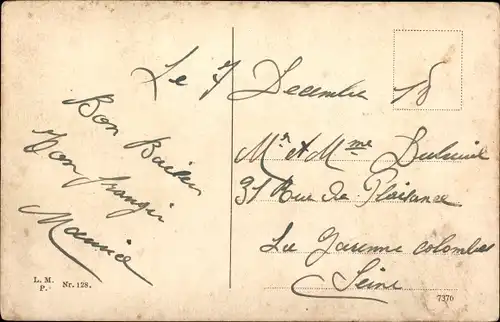 Le 7 Decembre 18
Bon Baiser
Ton
Maurice
Mr et Mme
31 Rue de Plaisance
La Garenne colombes
Seine
L. M.
P. Nr. 128.
7370